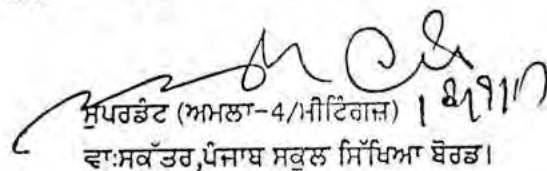 ਸੁਪਰਡੰਟ (ਅਮਲਾ-4/ਮੀਟਿੰਗਜ਼)
ਵਾ:ਸਕੱਤਰ,ਪੰਜਾਬ ਸਕੂਲ ਸਿੱਖਿਆ ਬੋਰਡ।